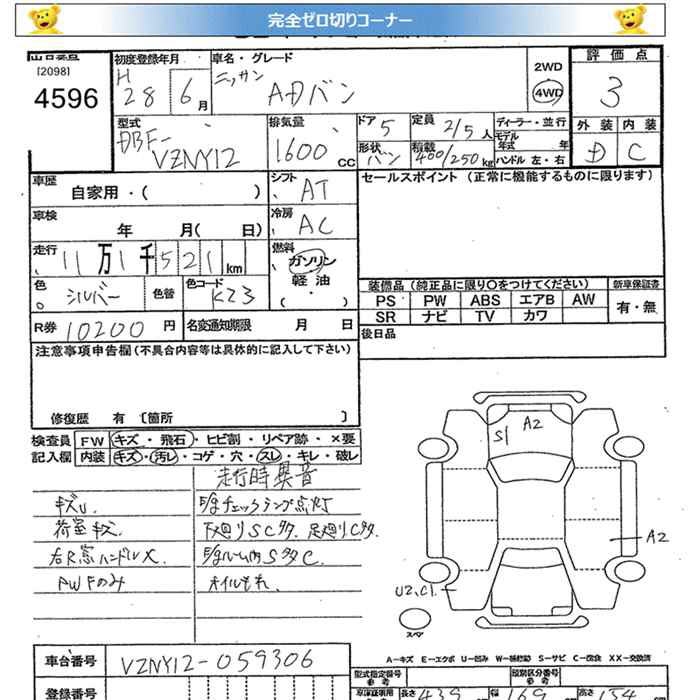 完全ゼロ切りコーナー
出品番号
[2098]
4596
初度登録年月
H 28 6 月
車名・グレード
ニッサン
ADバン
2WD
4WD
評価点
3
型式
DBF-
VZNY12
排気量
1600 CC
ドア 5
定員 2/5 人
ディーラー・並行
モデル年式 年
形状 バン
積載 400/250 kg
ハンドル 左・右
外装 内装
D C
車歴
自家用・( )
シフト AT
セールスポイント (正常に機能するものに限ります)
車検
年 月( 日)
冷房 AC
走行
11万1千521 km
燃料
ガソリン
軽油
( ・ )
色 シルバー
色替
色コード K23
装備品 (純正品に限り〇をつけてください)
新車保証書
PS PW ABS エアB AW
SR ナビ TV カワ
有・無
R券 10200 円
名変通知期限 月 日
後日品
注意事項申告欄 (不具合内容等は具体的に記入して下さい)
修復歴 有 [箇所 ]
検査員 FW キズ・飛石・ヒビ割・リペア跡・×要
記入欄 内装 キズ・汚レ・コゲ・穴・スレ・キレ・破レ
走行時異音
キズU
E/gチェックランプ点灯
荷室キズ
下廻りSCタ 足廻りCタ
右R窓ハンドル×
E/gルーム内SタC
PWFのみ
オイルもれ
S1
A2
A2
U2,C1
スペア
A-キズ E-エクボ U-凹み W-補修跡 S-サビ C-腐食 XX-交換済
車台番号 VZNY12-059306
型式指定番号
類別区分番号
登録番号
長さ 439
幅 169
高さ 154